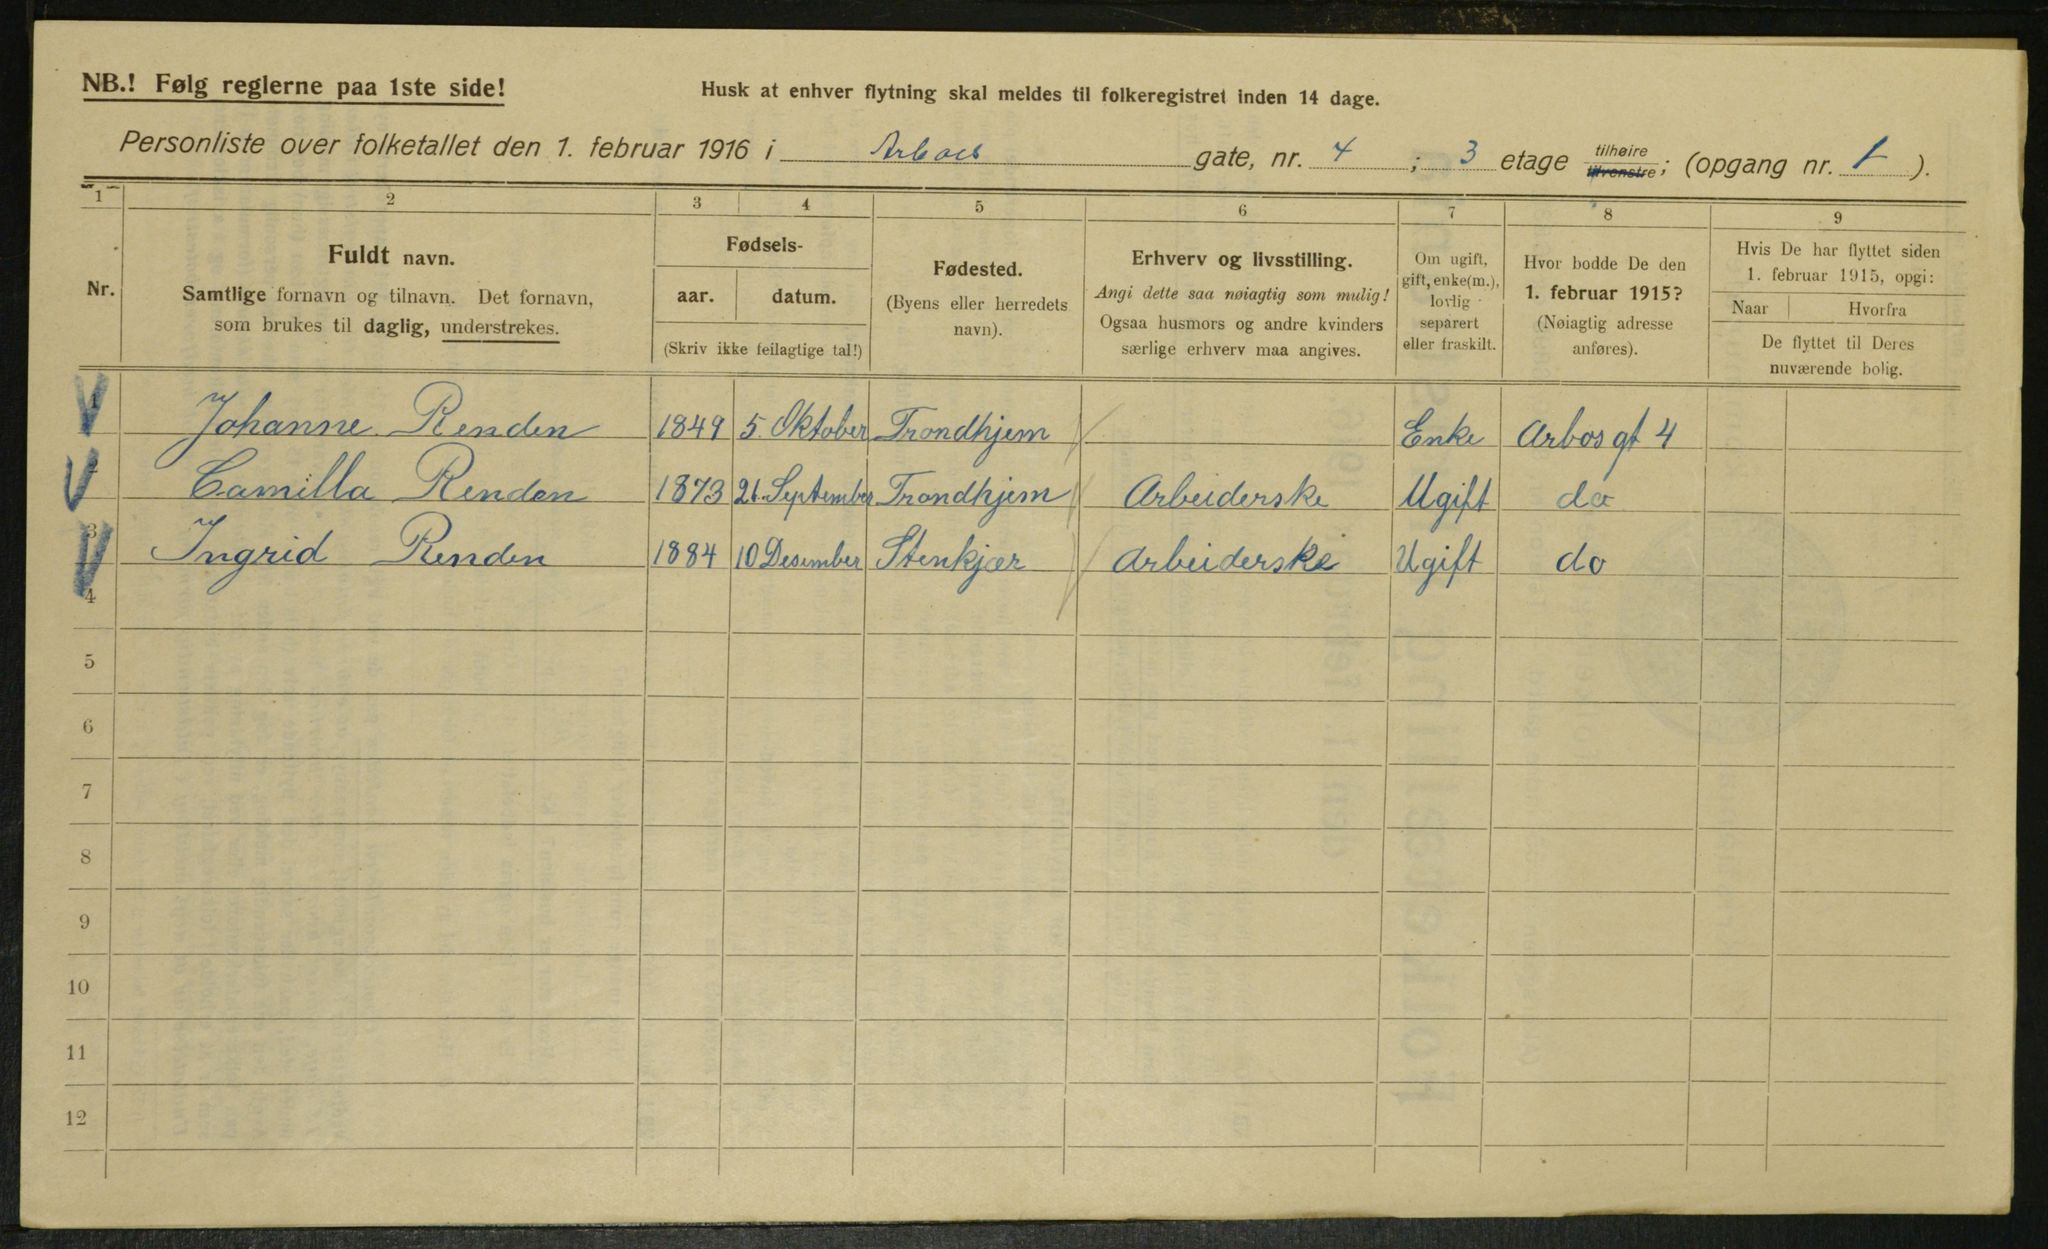 NB.! Følg reglerne paa 1ste side!
Husk at enhver flytning skal meldes til folkeregistret inden 14 dage.
Personliste over folketallet den 1. februar 1916 i Arboes gate, nr. 4 ; 3 etage tilhøire tilvenstre ; (opgang nr. 1 ).
1 2 3 4 5 6 7 8 9
Nr.
Fuldt navn.
Samtlige fornavn og tilnavn. Det fornavn,
som brukes til daglig, understrekes.
Fødsels-
aar. datum.
(Skriv ikke feilagtige tal!)
Fødested.
(Byens eller herredets
navn).
Erhverv og livsstilling.
Angi dette saa nøiagtig som mulig!
Ogsaa husmors og andre kvinders
særlige erhverv maa angives.
Om ugift,
gift, enke(m.),
lovlig
separert
eller fraskilt.
Hvor bodde De den
1. februar 1915?
(Nøiagtig adresse
anføres).
Hvis De har flyttet siden
1. februar 1915, opgi:
Naar Hvorfra
De flyttet til Deres
nuværende bolig.
1 Johanne Renden 1849 5. Oktober Trondhjem Enke Arbos gt 4
2 Camilla Renden 1873 21. September Trondhjem Arbeiderske Ugift do
3 Ingrid Renden 1884 10 Desember Stenkjær Arbeiderske Ugift do
4
5
6
7
8
9
10
11
12